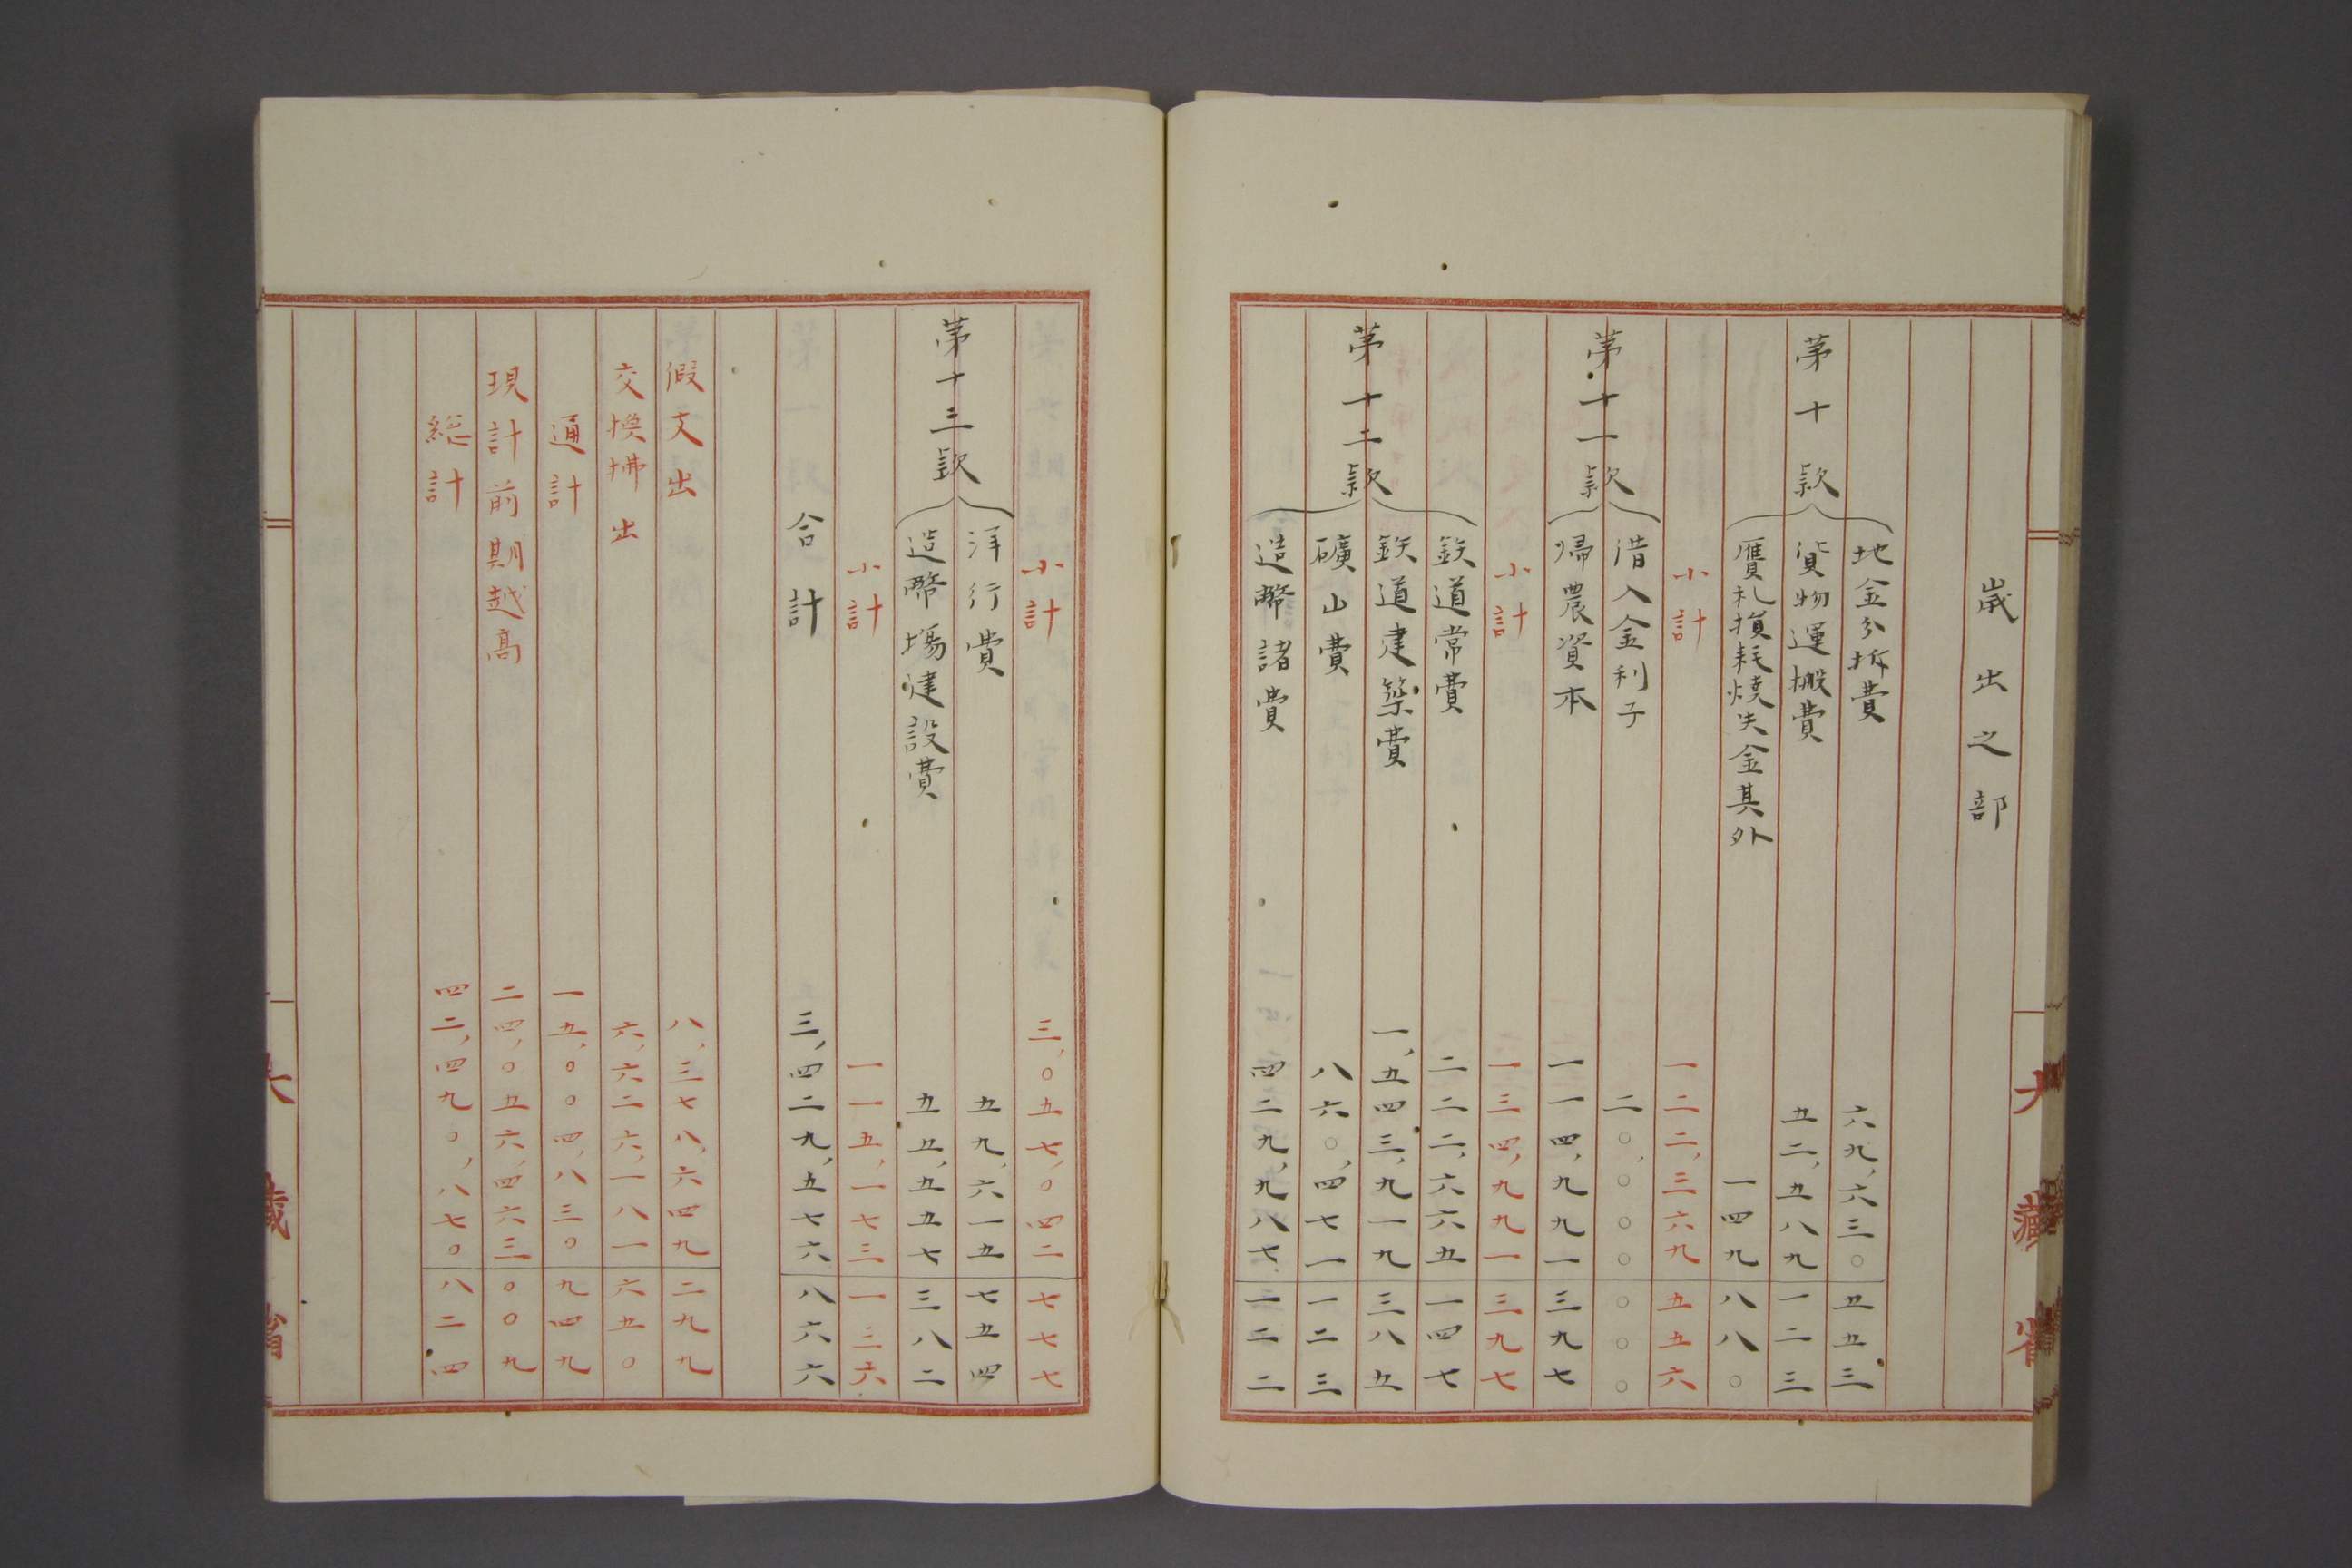 歳出之部
第十款
地金分拆費 六九,六三〇 五五三
貨物運搬費 五二,五八九 一二三
贋札損耗焼失金其外 一四九 八八〇
小計 一二二,三六九 五五六
第十一款
借入金利子 二〇,〇〇〇 〇〇〇
帰農資本 一一四,九九一 三九七
小計 一三四,九九一 三九七
第十二款
鉄道常費 二二二,六六五 一四七
鉄道建築費 一,五四三,九一九 三八五
礦山費 八六〇,四七一 一二三
造幣諸費 四二九,九八七 一二二
大藏省
小計 三,〇五七,〇四二 七七七
第十三款
洋行費 五九,六一五 七五四
造幣場建設費 五五,五五七 三八二
小計 一一五,一七三 一三六
合計 三,四二九,五七六 八六六
假支出 八,三七八,六四九 二九九
交換拂出 六,六二六,一八一 六五〇
通計 一五,〇〇四,八三〇 九四九
現計前期越高 二四,〇五六,四六三 〇〇九
総計 四二,四九〇,八七〇 八二四
大藏省